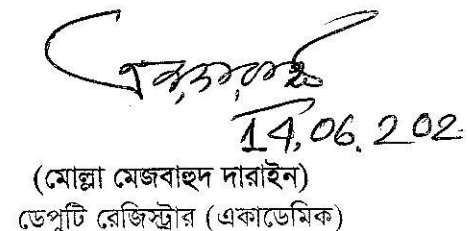 14.06.202
(মোল্লা মেজবাহুদ দারাইন)
ডেপুটি রেজিস্ট্রার (একাডেমিক)